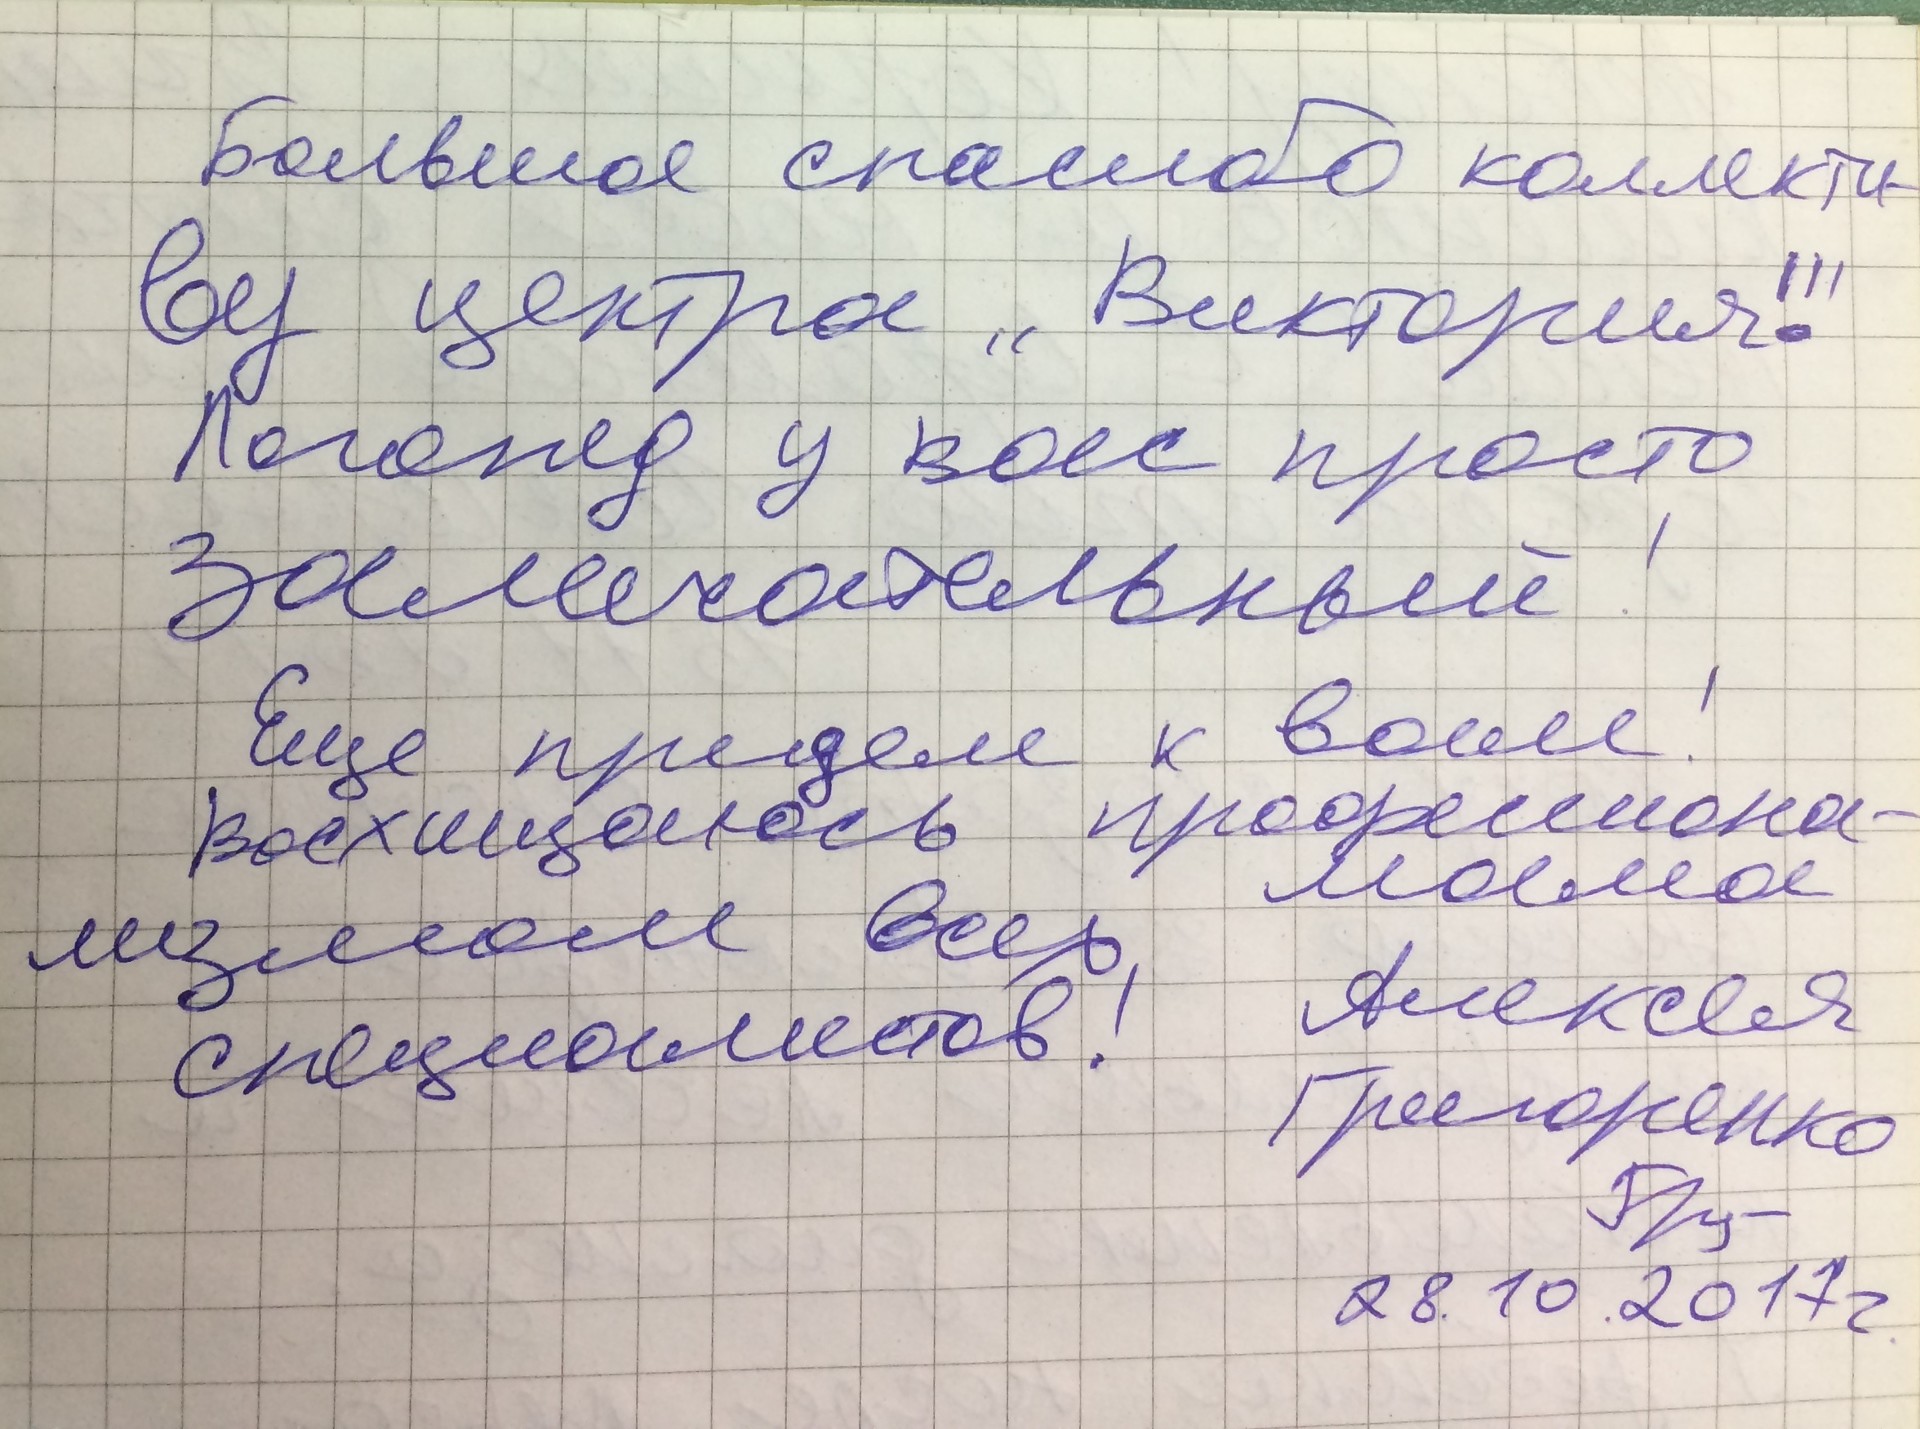 Большое спасибо коллекти-
ву центра „Виктория!!!
Логопед у вас просто
замечательный!
Еще придем к вам!
Восхищаюсь профессиона-
лизмом всех
специалистов!
мама
Алексея
Григоренко
28.10.2017г.